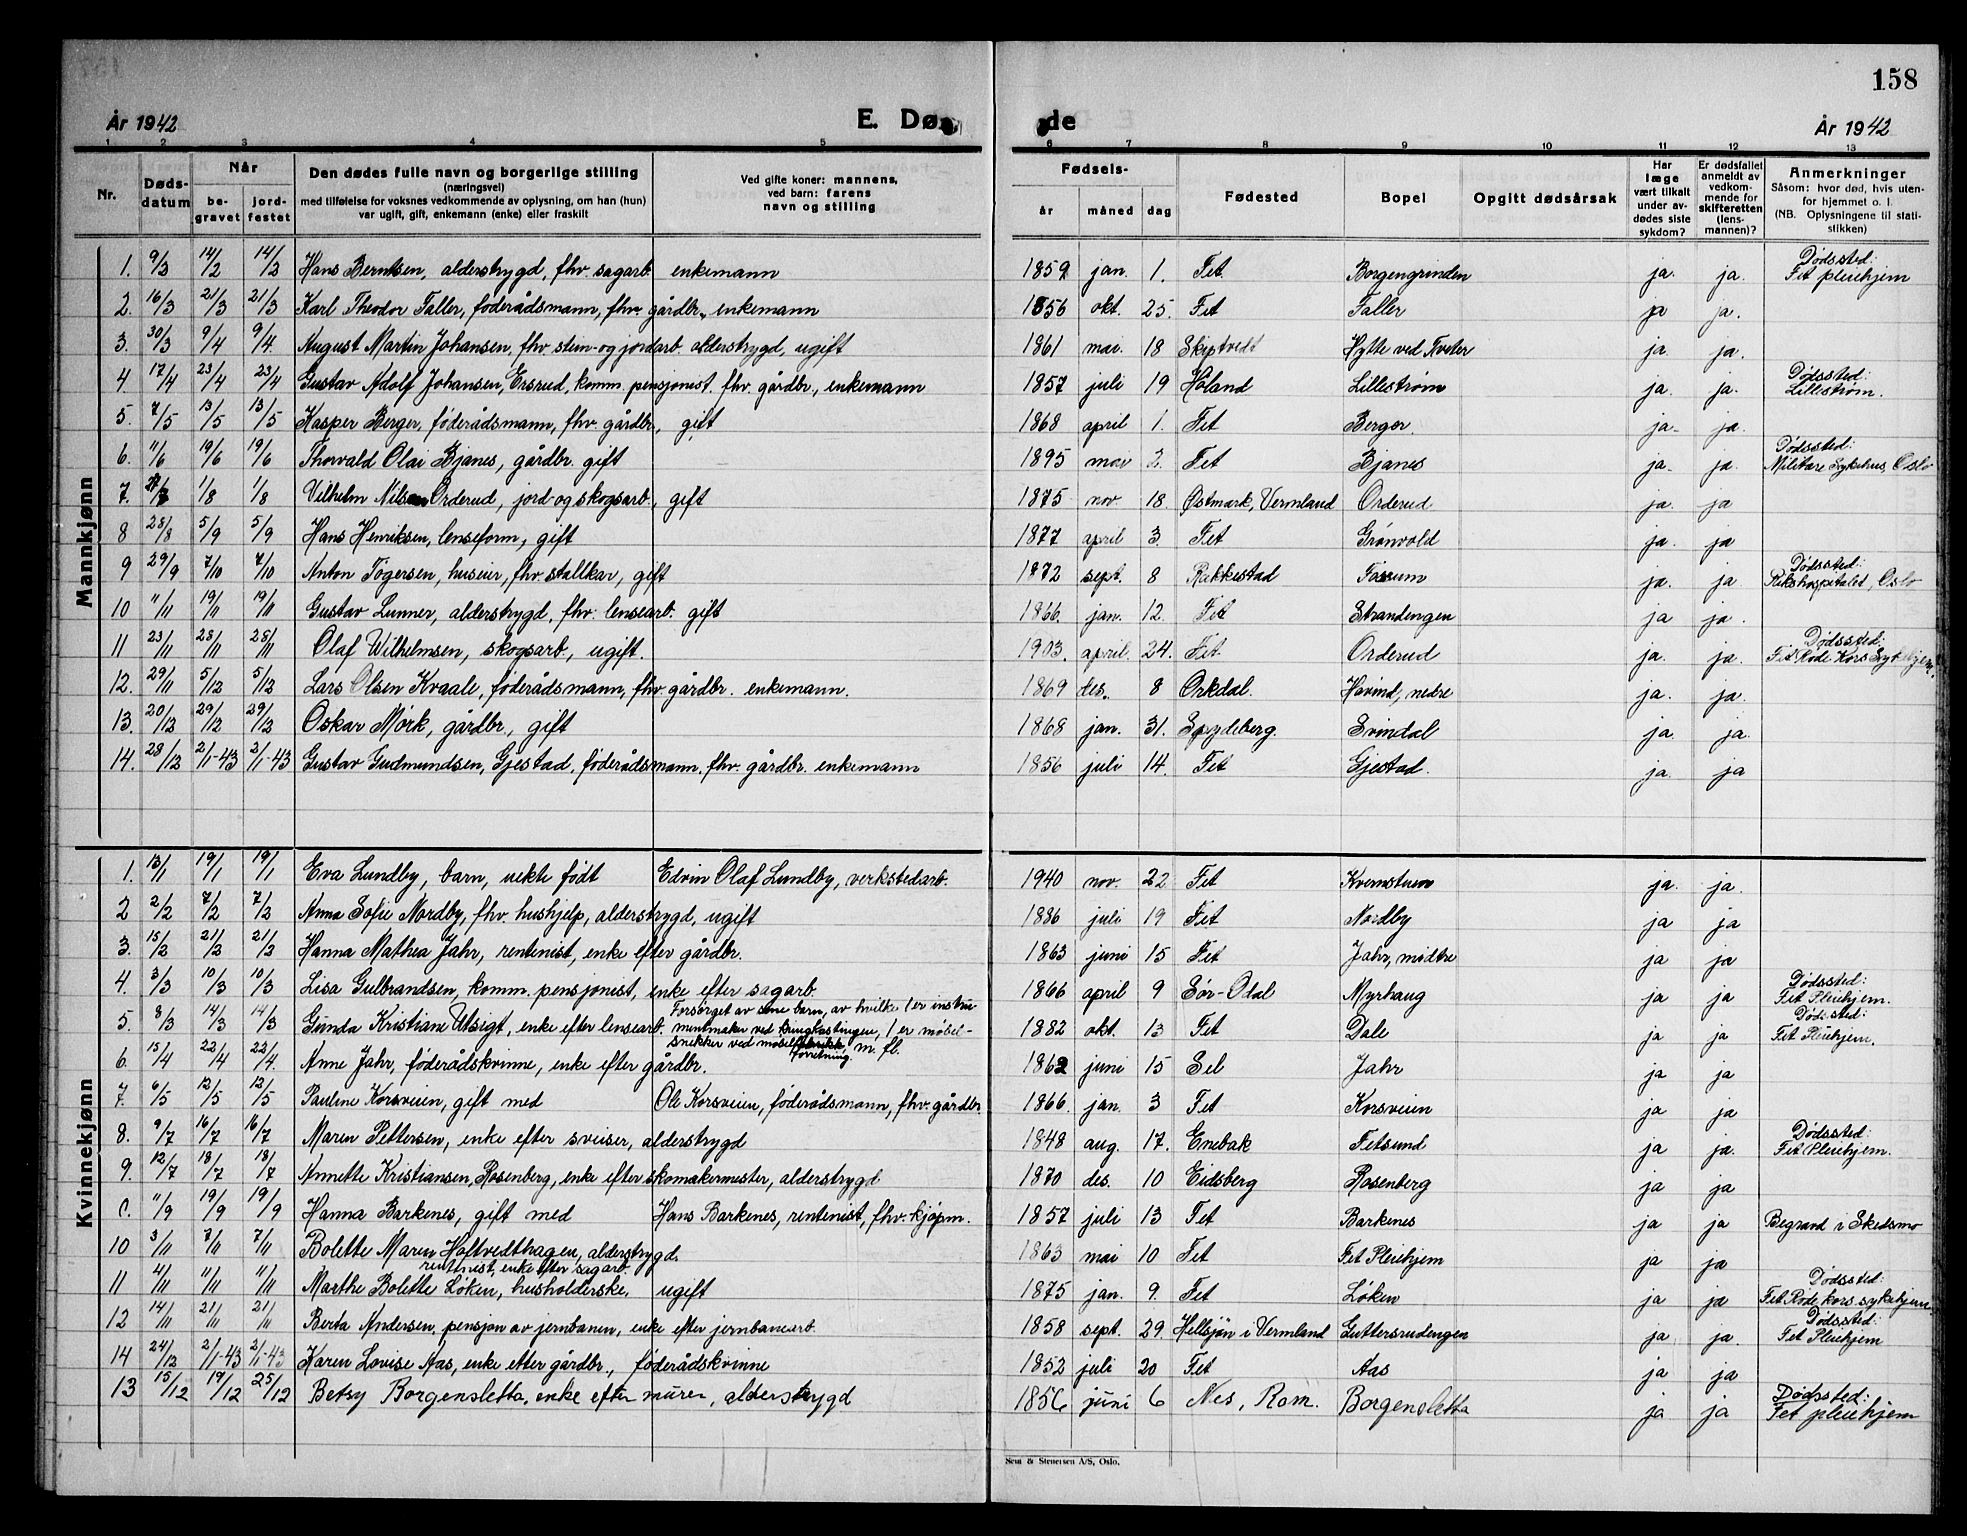 158
År 1942 E. Dø de År 1942
1 2 3 4 5 6 7 8 9 10 11 12 13
Nr. Døds-datum Når be-gravet jord-festet Den dødes fulle navn og borgerlige stilling (næringsvei) med tilføielse for voksnes vedkommende av oplysning, om han (hun) var ugift, gift, enkemann (enke) eller fraskilt Ved gifte koner: mannens, ved barn: farens navn og stilling Fødsels- år måned dag Fødested Bopel Opgitt dødsårsak Har læge vært tilkalt under av-dødes siste sykdom? Er dødsfallet anmeldt av vedkom-mende for skifteretten (lens-mannen)? Anmerkninger Såsom: hvor død, hvis uten-for hjemmet o. l. (NB. Oplysningene til stati-stikken)
Mannkjønn
1. 9/3 14/2 14/2 Hans Berntsen, alderstrygd, fhv. sagarb. enkemann 1859 jan. 1. Fet Borgengrinden ja. ja. Dødssted: Fet pleiehjem
2. 16/3 21/3 21/3 Karl Theodor Faller, føderådsmann, fhv. gårdbr., enkemann 1856 okt. 25. Fet Faller ja ja.
3. 30/3 9/4 9/4. August Martin Johansen, fhv. stein- og jordarb. alderstrygd, ugift 1861 mai. 18 Skiptvedt Hytte ved Tveter ja. ja.
4. 17/4 23/4 23/4 Gustav Adolf Johansen, Ersrud, komm. pensjonist. fhv. gårdbr., enkemann 1857 juli 19 Høland Lillestrøm ja. ja. Dødssted: Lillestrøm.
5. 7/5 13/5 13/5 Kasper Berger, føderådsmann, fhv. gårdbr., gift 1868 april 1. Fet Berger. ja. ja.
6. 11/6 19/6 19/6 Thorvald Olai Bjanes, gårdbr. gift 1895 mai 2. Fet Bjanes ja. ja. Dødssted: Militære Sykehus, Oslo
7. 1/8 1/8 Vilhelm Nilsen Orderud, jord- og skogsarb., gift 1875 nov. 18. Østmark, Vermland Orderud ja. ja
8 28/8 5/9 5/9 Hans Henriksen, lenseform, gift 1877 april 3. Fet Grønvold ja. ja
9 29/9 7/10 7/10 Anton Togersen, huseier, fhv. stallkar, gift 1872 sept. 8 Rakkestad Fossum ja. ja Dødssted: Rikshospitalet, Oslo
10 11/11 19/11 19/11 Gustav Lunner, alderstrygd, fhv. lensearb. gift 1866. jan. 12. Fet Strandengen ja ja.
11 23/11 28/11 28/11 Olaf Wilhelmsen, skogsarb., ugift. 1903. april. 24. Fet Orderud ja. ja. Dødssted: Fet Røde Kors Sykehjem.
12. 29/11 5/12 5/12 Lars Olsen Kvaale, føderådsmann, fhv. gårdbr. enkemann. 1869 des. 8 Orkdal. Hovind, nedre ja. ja.
13. 20/12 29/12 29/12 Oskar Mørk, gårdbr., gift 1868 jan. 31. Spydeberg. Svindal ja. ja.
14. 28/12 2/1-43 2/1-43 Gustav Gudmundsen, Gjestad, føderådsmann, fhv. gårdbr. enkemann 1856 juli 14. Fet Gjestad. ja. ja
Kvinnekjønn
1. 13/1 19/1 19/1 Eva Lundby, barn, uekte født Edvin Olaf Lundby, verkstedarb. 1940 nov. 22 Fet Kvernstuen ja. ja.
2 2/2 7/2 7/2 Anna Sofie Nordby, fhv. hushjelp, alderstrygd, ugift 1886 juli 19 Fet Nordby ja ja
3. 15/2 21/2 21/2 Hanna Mathea Jahr, rentenist, enke efter gårdbr. 1863 juni 15 Fet Jahr, midtre ja ja
4. 3/3 10/3 10/3 Lisa Gulbrandsen, komm. pensjonist, enke efter sagarb. 1866 april 9 Sør-Odal Myrhaug ja ja Dødssted: Fet Pleiehjem.
5. 8/3 14/3 14/3 Gunda Kristiane Utsigt, enke efter lensearb. Forsørget av sine barn, av hvilke 1 er instru-mentmaker ved kringkastingen, 1 er møbel-snekker ved møbelfabrikk forretning, m. fl. 1882 okt. 13 Fet Dale ja ja Dødssted: Fet Pleiehjem.
6. 15/4 22/4 22/4. Anne Jahr, føderådskvinne, enke efter gårdbr. 1862 juni 15 Sel Jahr ja ja
7. 6/5 12/5 12/5 Pauline Korsveien, gift med Ole Korsveien, føderådsmann, fhv. gårdbr 1866. jan. 3 Fet Korsveien ja ja
8. 9/7 16/7 16/7 Maren Pettersen, enke efter sveiser, alderstrygd 1848 aug. 17. Enebak Fetsund ja ja. Dødssted: Fet Pleiehjem.
9. 12/7 18/7 18/7 Annette Kristiansen, Rosenberg, enke efter skomakermester, alderstrygd 1870 des. 10 Eidsberg Rosenberg ja ja
11/9 19/9 19/9 Hanna Barkenes, gift med Hans Barkenes, rentenist, fhv. kjøpm. 1857 juli 13 Fet Barkenes ja ja Begravd i Skedsmo
10 3/11 7/11 7/11 Bolette Maren Hoftvedthagen, alderstrygd. rentenist, enke efter sagarb. 1863 mai 10 Fet Fet Pleiehjem ja ja
11 4/11 11/11 11/11 Marthe Bolette Løken, husholderske, ugift 1875 jan. 9. Fet Løken ja ja Dødssted: Fet Røde kors sykehjem
12 14/11 21/11 21/11 Berta Andersen, pensjon av jernbanen, enke efter jernbanearb. 1858 sept. 29. Hellsjøn i Vermland Guttersrudengen ja ja. Dødssted: Fet Pleiehjem
14 24/12 2/1-43 2/1-43 Karen Lovise Aas, enke etter gårdbr., føderådskvinne 1852 juli 20 Fet Aas ja ja
13 15/12 19/12 25/12 Betsy Borgensletta, enke efter murer, alderstrygd 1856 juni 6 Nes, Rom. Borgensletta ja ja Dødssted: Fet pleiehjem
Sem & Stenersen A/S, Oslo.